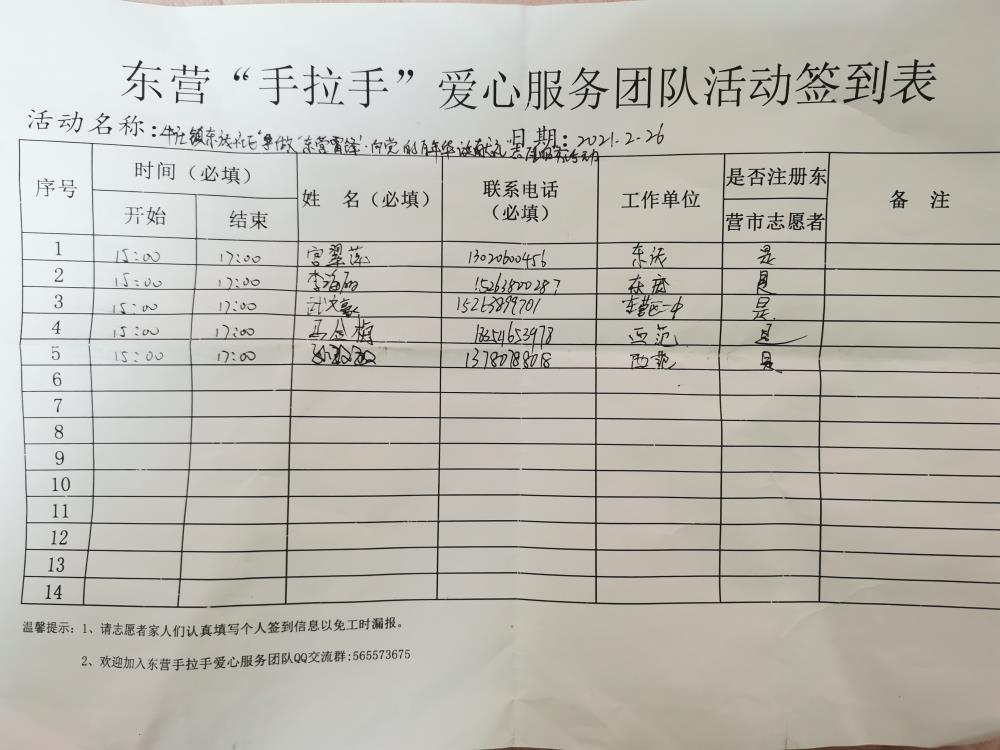 东营“手拉手”爱心服务团队活动签到表
活动名称: 日期: 2021.2.26
序号 时间（必填） 姓 名（必填） 联系电话（必填） 工作单位 是否注册东营市志愿者 备 注
开始 结束
1 15:00 17:00 宫翠萍 13020600456 东沃 是
2 15:00 17:00 李海丽 15263800287 是
3 15:00 17:00 武文豪 15263899701 东营区一中 是
4 15:00 17:00 马金梅 18654653978 西范 是
5 15:00 17:00 13780788018 西范 是
6
7
8
9
10
11
12
13
14
温馨提示: 1、请志愿者家人们认真填写个人签到信息以免工时漏报。
2、欢迎加入东营手拉手爱心服务团队QQ交流群:565573675